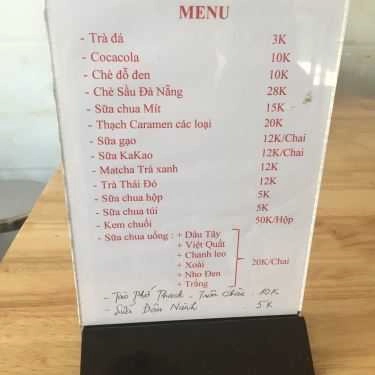 MENU
- Trà đá 3K
- Cocacola 10K
- Chè đỗ đen 10K
- Chè Sầu Đà Nẵng 28K
- Sữa chua Mít 15K
- Thạch Caramen các loại 20K
- Sữa gạo 12K/Chai
- Sữa KaKao 12K/Chai
- Matcha Trà xanh 12K
- Trà Thái Đỏ 12K
- Sữa chua hộp 5K
- Sữa chua túi 5K
- Kem chuối 50K/Hộp
- Sữa chua uống : + Dâu Tây
+ Việt Quất
+ Chanh leo
+ Xoài 20K/Chai
+ Nho Đen
+ Trắng
- Tào Phớ Thạch - Trân Châu : 10K
- Sữa Đậu Nành : 5K